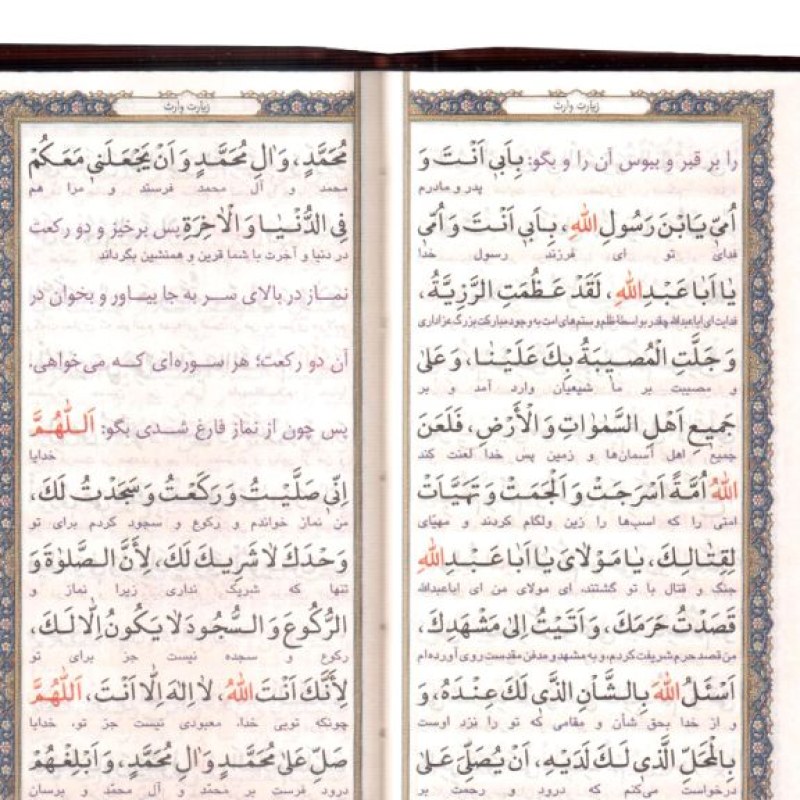 زیارت وارث
را بر قبر و ببوس آن را و بگو: بِاَبي اَنْتَ وَ
پدر و مادرم
اُمّي يَابْنَ رَسُولِ اللّٰهِ، بِاَبي اَنْتَ وَ اُمّي
فدای تو ای فرزند رسول خدا
يٰا اَبٰا عَبْدِ اللّٰهِ، لَقَدْ عَظُمَتِ الرَّزِيَّةُ،
فدایت ای اباعبدالله چقدر بواسطهٔ ظلم و ستم‌های امت به وجود مبارکت بزرگ عزاداری
وَ جَلَّتِ الْمُصيبَةُ بِكَ عَلَيْنٰا، وَ عَلىٰ
و مصیبت بر ما شیعیان وارد آمد و بر
جَميعِ اَهْلِ السَّمٰوٰاتِ وَ الْأَرْضِ، فَلَعَنَ
جمیع اهل آسمان‌ها و زمین پس خدا لعنت کند
اللّٰهُ اُمَّةً اَسْرَجَتْ وَ اَلْجَمَتْ وَ تَهَيَّاَتْ
امتی را که اسب‌ها را زین ولگام کردند و مهیّای
لِقِتٰالِكَ، يٰا مَوْلٰايَ يٰا اَبٰا عَبْدِ اللّٰهِ
جنگ و قتال با تو گشتند، ای مولای من ای اباعبدالله
قَصَدْتُ حَرَمَكَ، وَ اَتَيْتُ اِلىٰ مَشْهَدِكَ،
من قصد حرم شریفت کردم، و به مشهد و مدفن مقدست روی آورده‌ام
اَسْئَلُ اللّٰهَ بِالشَّأْنِ الَّذي لَكَ عِنْدَهُ، وَ
و از خدا بحق شأن و مقامی که تو را نزد اوست
بِالْمَحَلِّ الَّذي لَكَ لَدَيْهِ، اَنْ يُصَلِّيَ عَلىٰ
درخواست می‌کنم که درود و رحمت بر
زیارت وارث
مُحَمَّدٍ، وَ اٰلِ مُحَمَّدٍ وَ اَنْ يَجْعَلَني مَعَكُمْ
محمد و آل محمد فرستد و مرا هم
فِي الدُّنْيٰا وَ الْاٰخِرَةِ پس برخیز و دو رکعت
در دنیا و آخرت با شما قرین و همنشین بگرداند
نماز در بالای سر به جا بیاور و بخوان در
آن دو رکعت؛ هر سوره‌ای که می‌خواهی.
پس چون از نماز فارغ شدی بگو: اَللّٰهُمَّ
خدایا
اِنّي صَلَّيْتُ وَ رَكَعْتُ وَ سَجَدْتُ لَكَ،
من نماز خواندم و رکوع و سجود کردم برای تو
وَحْدَكَ لٰا شَريكَ لَكَ، لِأَنَّ الصَّلوٰةَ وَ
تنها که شریک نداری زیرا نماز و
الرُّكُوعَ وَ السُّجُودَ لٰا يَكُونُ اِلّٰا لَكَ،
رکوع و سجده نیست جز برای تو
لِأَنَّكَ اَنْتَ اللّٰهُ، لٰا اِلهَ اِلّٰا اَنْتَ، اَللّٰهُمَّ
چونکه تویی خدا، معبودی نیست جز تو، خدایا
صَلِّ عَلىٰ مُحَمَّدٍ وَ اٰلِ مُحَمَّدٍ، وَ اَبْلِغْهُمْ
درود فرست بر محمّد و آل محمّد و برسان